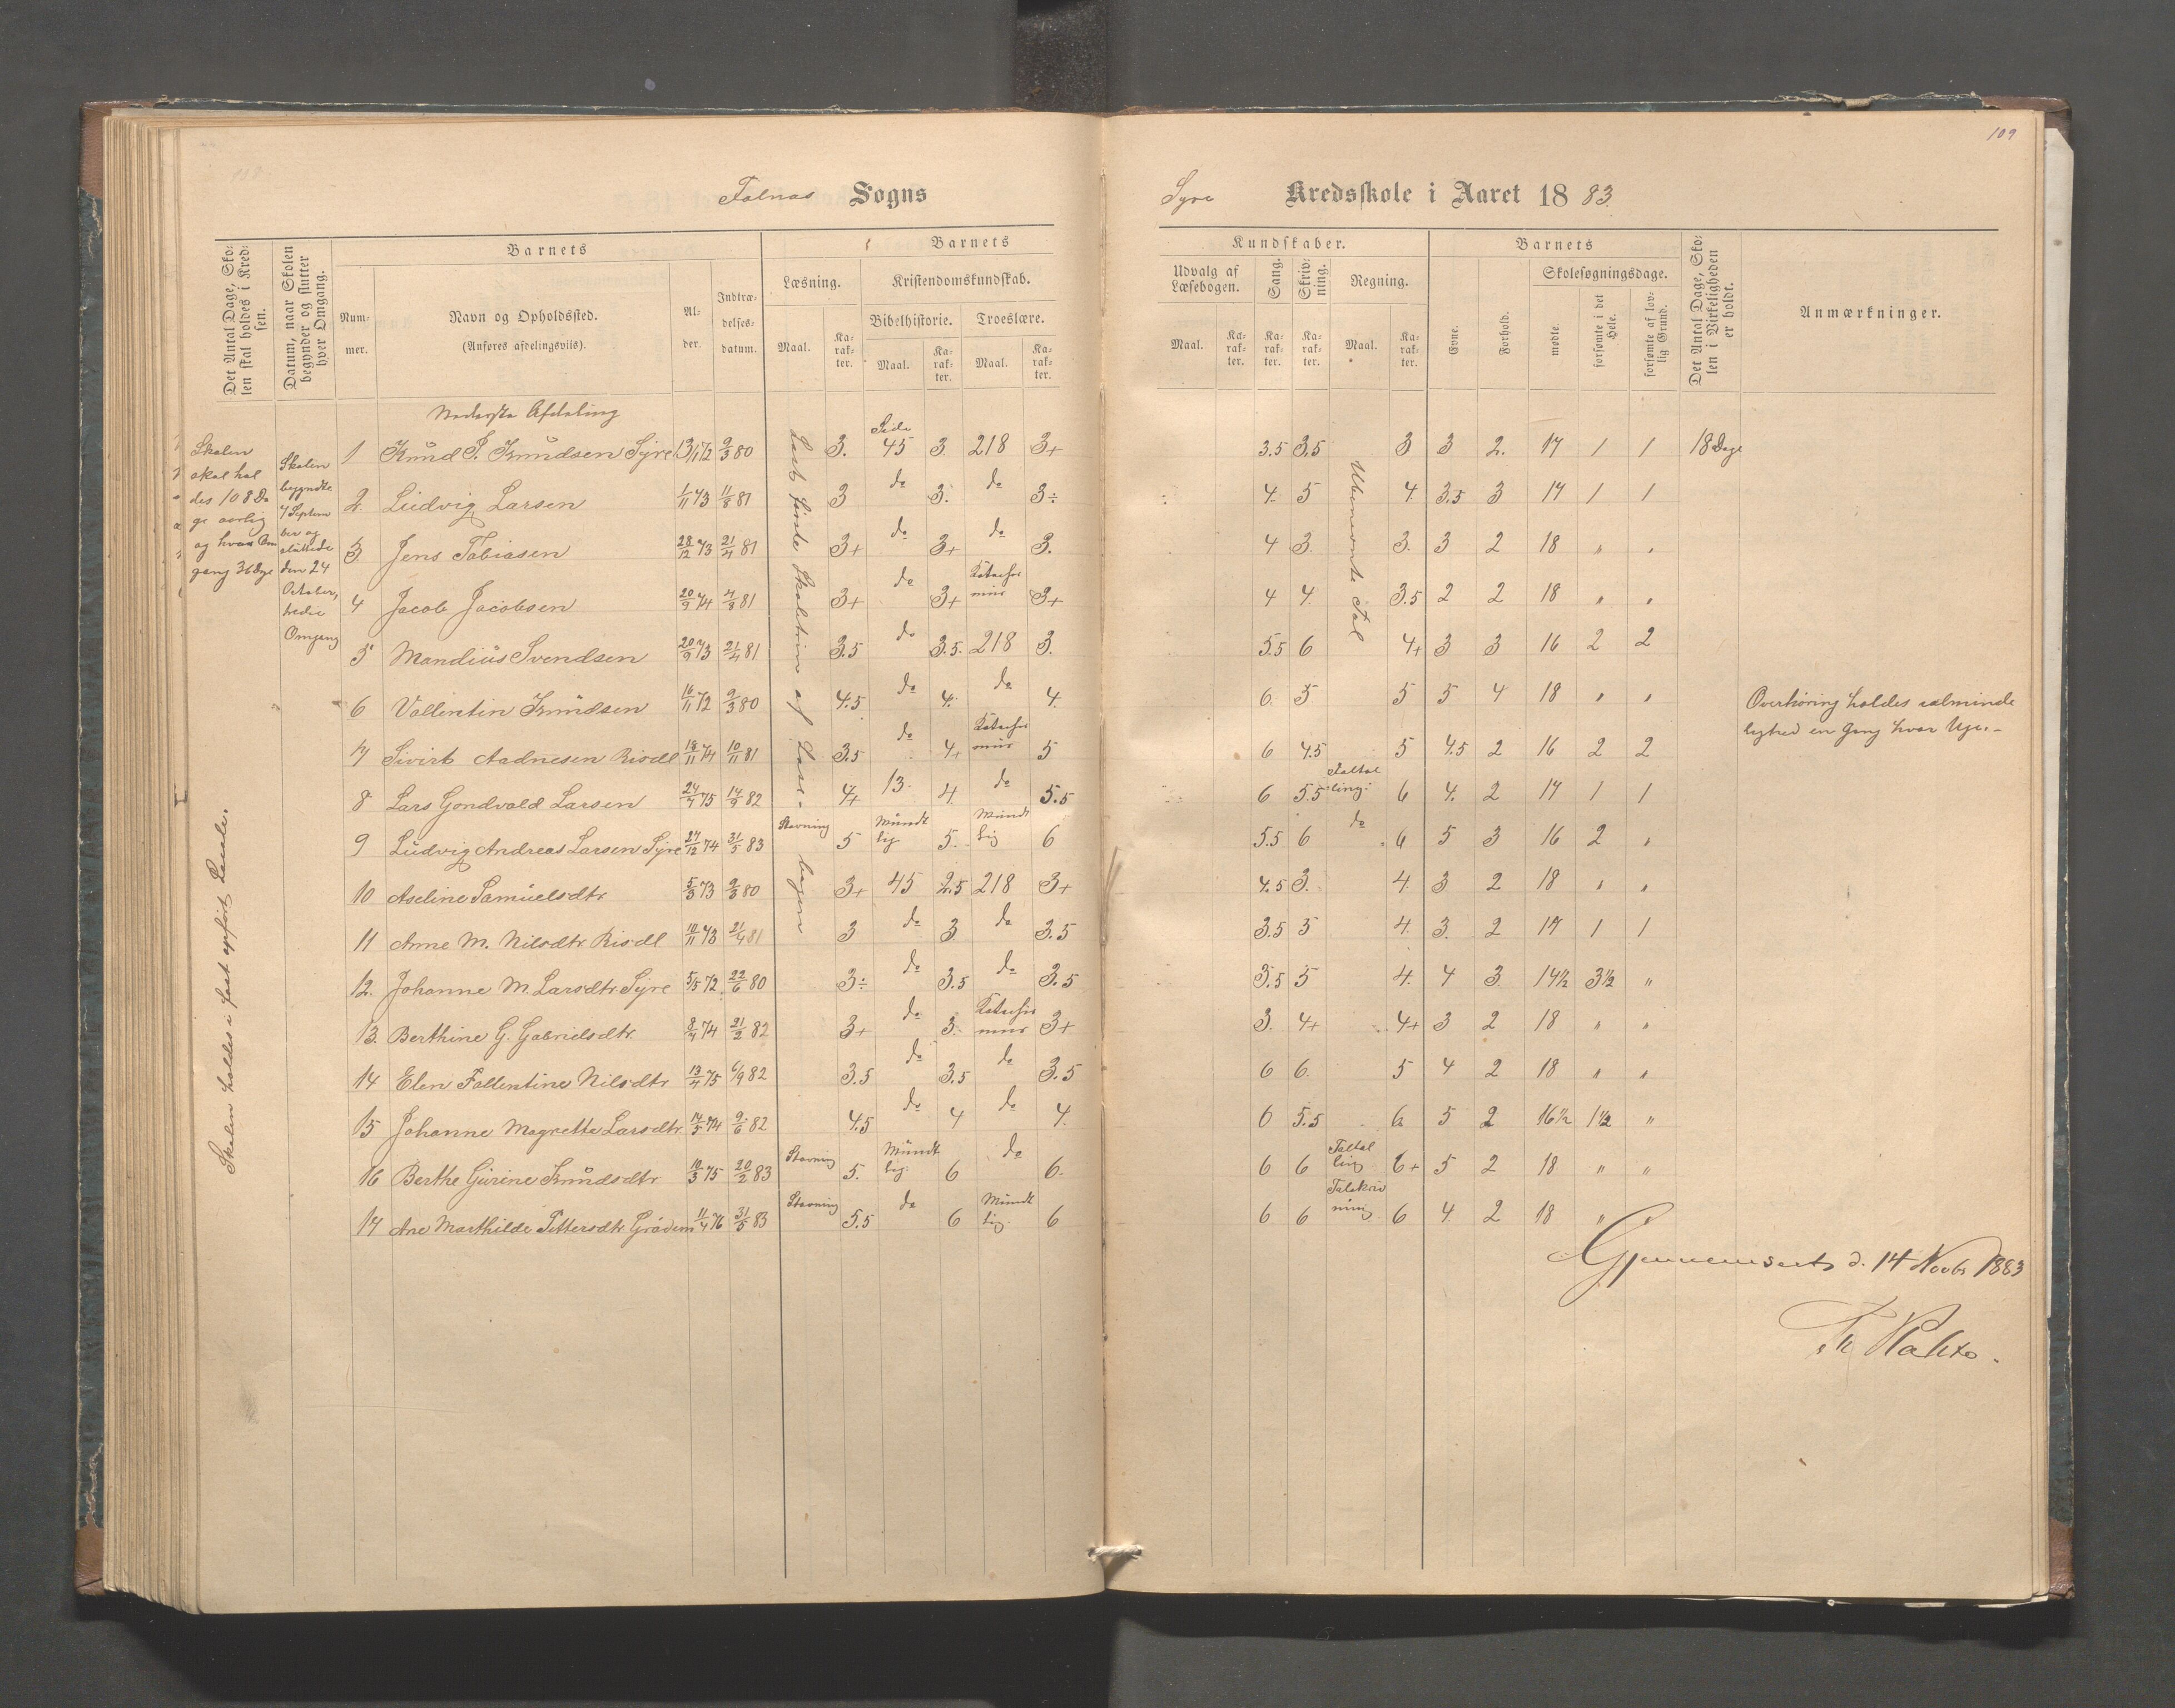 109
Falnæs Sogns
Syre Kredsskole i Aaret 1883.
Det Antal Dage, Skolen skal holdes i Kredsen.
Datum, naar Skolen begynder og slutter hver Omgang.
Barnets
Nummer.
Navn og Opholdssted.
(Anføres afdelingsvis).
Alder.
Indtrædelsesdatum.
Barnets
Læsning.
Maal.
Karakter.
Kristendomskundskab.
Bibelhistorie.
Maal.
Karakter.
Troeslære.
Maal.
Karakter.
Kundskaber.
Udvalg af Læsebogen.
Maal.
Karakter.
Sang.
Karakter.
Skrivning.
Karakter.
Regning.
Maal.
Karakter.
Barnets
Evne.
Forhold.
Skolesøgningsdage.
mødte.
forsømte i det Hele.
forsømte af lovlig Grund.
Det Antal Dage, Skolen i Virkeligheden er holdt.
Anmærkninger.
Skolen
skal hol
des 108 Da
ge aarlig
og hver Om
gang 36 Dage
Skolen
begyndte
7 Septem
ber og
sluttede
den 24
October,
tredie
Omgang
Skolen holdes i fast opført Locale.
Nederste Afdeling
Læst første Skoletrin af Læse-bogen
Ubenævnte Tal
1 Knud P. Knudsen Syre 13/1 72 9/3 80 3. Side 45 3 218 3+ 3.5 3,5 3 3 2. 17 1 1 18 Dage
2. Ludvig Larsen 1/11 73 11/8 81 3 do 3. do 3÷ 4. 5 4. 3.5 3 17 1 1
3. Jens Tobiasen 28/12 73 21/4 81 3+ do 3+ do 3. 4 3. 3. 3 2 18 " "
4 Jacob Jacobsen 20/9 74 4/8 81 3+ do 3+ Katechis mus 3+ 4 4 3.5 2 2 18 " "
5 Mandius Svendsen 20/9 73 21/4 81 3.5 do 3.5. 218 3. 5.5 6 4+ 3 3 16 2 2
6 Vallentin Knudsen 16/11 72 9/3 80 4.5 do 4. do 4. 6. 5 5 5 4 18 " "
7 Sivert Aadnesen Risdl 18/11 74 10/11 81 3.5 do 4+ Katechis mus 5 6 4.5 5 4.5 2 16 2 2
8 Lars Gondvald Larsen 24/7 75 14/9 82 4+ 13. 4. do 5.5 6 5.5 Taltæl ling. 6 4. 2 17 1 1
9 Ludvig Andreas Larsen Syre 27/12 74 31/5 83 Stavning 5 Mundt lig 5. Mundt lig 6 5.5 6 do 6 5 3 16 2 "
10 Aseline Samuelsdtr 5/3 73 9/3 80 3+ 45 2.5 218 3+ 4.5 3. 4. 3. 2 18 " "
11 Anne M. Nilsdtr. Risdl 10/11 73 21/4 81 3 do 3 do 3.5 3.5 5 4. 3. 2 17 1 1
12. Johanne M. Larsdtr Syre 5/5 72. 22/6 80 3÷ do 3.5 do 3.5 3.5 5 4. 4 3 14½ 3½ "
13. Berthine G. Gabrielsdtr. 8/4 74 21/2 82 3+ do 3. Katechis mus 3+ 3. 4+ 4+ 3 2 18 " "
14 Elen Fallentine Nilsdtr 13/4 75 6/9 82 3.5 do 3.5 do 3.5 6 6. 5 4 2 18 " "
15 Johanne Magrette Larsdtr. 14/5 74 9/6 82 4.5 do 4 do 4. 6 5.5 6. 5 2 16½ 1½ "
16 Berthe Gurine Knudsdtr 10/3 75 20/2 83 Stavning 5. Mundt lig. 6 do 6. 6 6 Taltæl ling 6+ 5 2 18 " "
17 Ane Marthilde Pettersdtr. Grødem 11/4 76 31/5 83 Stavning 5.5 do 6 Mundt lig. 6 6 6 Talskriv ning 6 4 2 18 " "
Overhøring holdes i alminde
lighed en Gang hver Uge. –
Gjennemseets d. 14 Novbr 1883